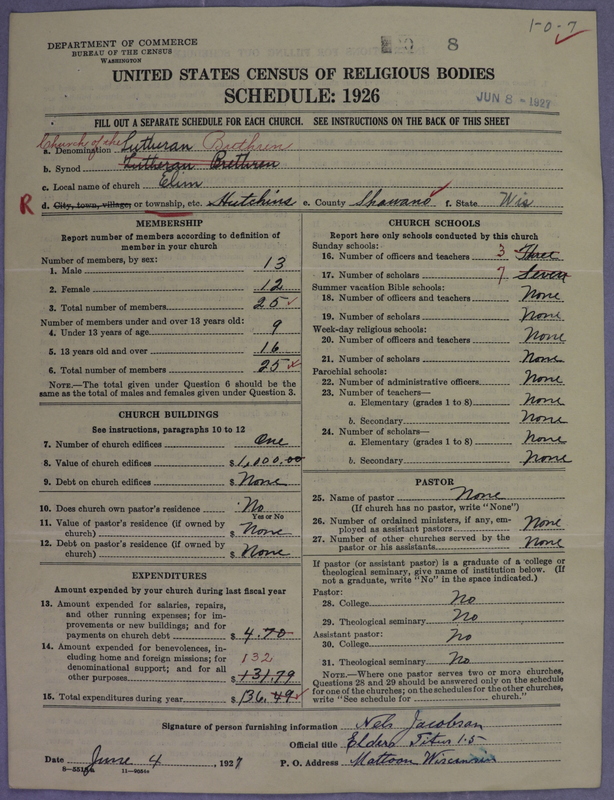 1-0-7
DEPARTMENT OF COMMERCE
BUREAU OF THE CENSUS
WASHINGTON
8
UNITED STATES CENSUS OF RELIGIOUS BODIES
SCHEDULE: 1926
JUN 8 - 1927
FILL OUT A SEPARATE SCHEDULE FOR EACH CHURCH. SEE INSTRUCTIONS ON THE BACK OF THIS SHEET
Church of the
a. Denomination Lutheran Brethren
b. Synod Lutheran Brethren
c. Local name of church Elim
R d. City, town, village, or township, etc. Hutchins e. County Shawano f. State Wis
MEMBERSHIP
Report number of members according to definition of member in your church
Number of members, by sex:
1. Male 13
2. Female 12
3. Total number of members 25
Number of members under and over 13 years old:
4. Under 13 years of age 9
5. 13 years old and over 16
6. Total number of members 25
NOTE.—The total given under Question 6 should be the same as the total of males and females given under Question 3.
CHURCH BUILDINGS
See instructions, paragraphs 10 to 12
7. Number of church edifices One
8. Value of church edifices $1,000.00
9. Debt on church edifices $ None
10. Does church own pastor's residence No
Yes or No
11. Value of pastor's residence (if owned by church) $ None
12. Debt on pastor's residence (if owned by church) $ None
EXPENDITURES
Amount expended by your church during last fiscal year
13. Amount expended for salaries, repairs, and other running expenses; for improvements or new buildings; and for payments on church debt $ 4.70
14. Amount expended for benevolences, including home and foreign missions; for denominational support; and for all other purposes $ 132 131.79
15. Total expenditures during year $ 136.49
CHURCH SCHOOLS
Report here only schools conducted by this church
Sunday schools:
16. Number of officers and teachers 3 Three
17. Number of scholars 7 Seven
Summer vacation Bible schools:
18. Number of officers and teachers None
19. Number of scholars None
Week-day religious schools:
20. Number of officers and teachers None
21. Number of scholars None
Parochial schools:
22. Number of administrative officers None
23. Number of teachers—
a. Elementary (grades 1 to 8) None
b. Secondary None
24. Number of scholars—
a. Elementary (grades 1 to 8) None
b. Secondary None
PASTOR
25. Name of pastor None
(If church has no pastor, write "None")
26. Number of ordained ministers, if any, employed as assistant pastors None
27. Number of other churches served by the pastor or his assistants None
If pastor (or assistant pastor) is a graduate of a college or theological seminary, give name of institution below. (If not a graduate, write "No" in the space indicated.)
Pastor:
28. College No
29. Theological seminary No
Assistant pastor:
30. College No
31. Theological seminary No
NOTE.—Where one pastor serves two or more churches, Questions 28 and 29 should be answered only on the schedule for one of the churches; on the schedules for the other churches, write "See schedule for church."
Signature of person furnishing information Nels Jacobson
Official title Elders Titus 1.5
Date June 4, 1927 P. O. Address Mattoon Wisconsin